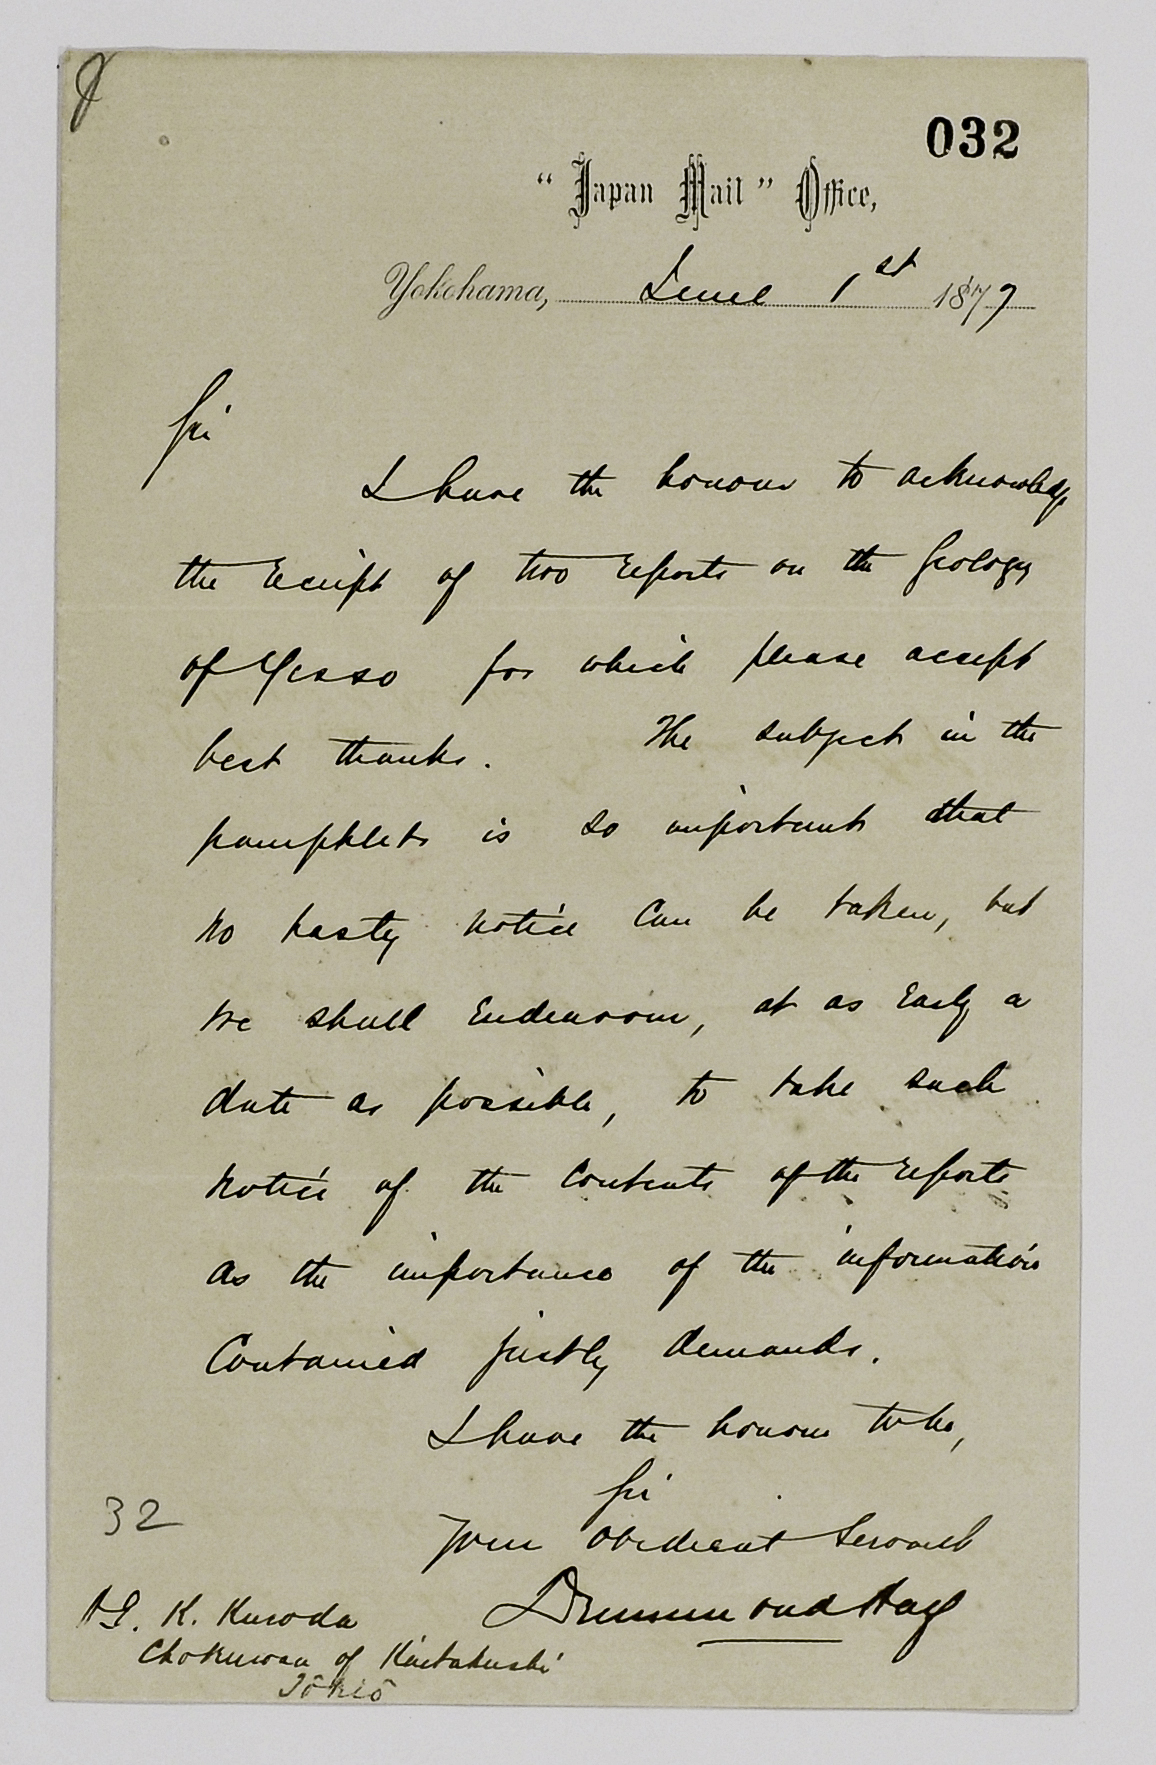 032
"Japan Mail" Office,
Yokohama, June 1st 1877
Sir
I have the honour to acknowledge
the receipt of two reports on the Geology
of Yesso for which please accept
best thanks. The subject in the
pamphlets is so important that
no hasty notice can be taken, but
we shall endeavour, at as early a
date as possible, to take such
notice of the contents of the reports
as the importance of the information
contained justly demands.
I have the honour to be,
Sir
Your obedient Servant
Drummond Hay
32
H.E. K. Kuroda
Chokuwan of Kaitakushi
Tôkiô